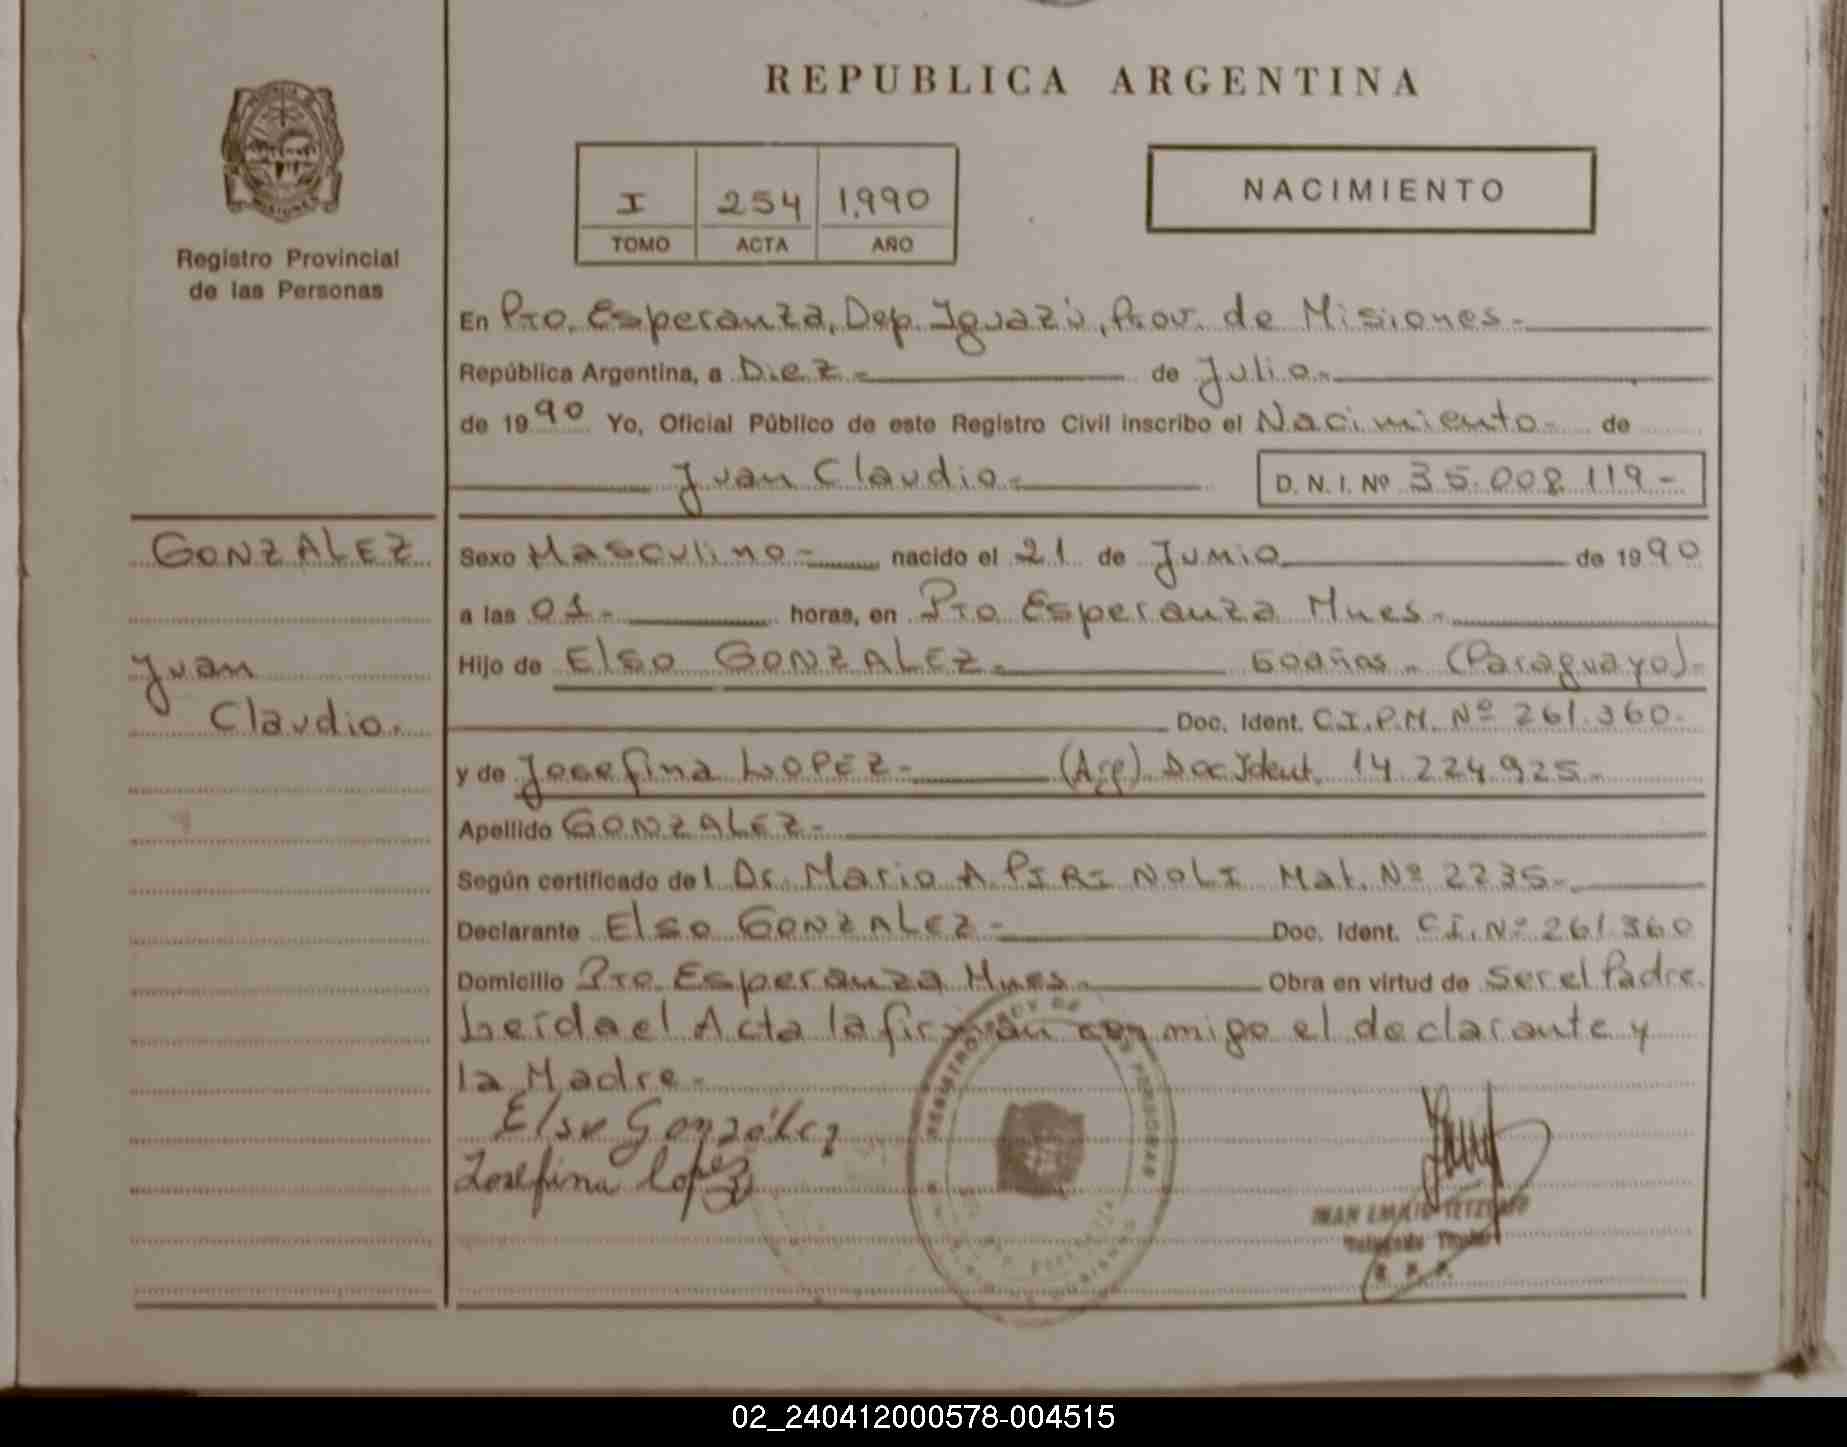 REPUBLICA ARGENTINA
I 254 1,990
TOMO ACTA AÑO
NACIMIENTO
Registro Provincial
de las Personas
En Pto. Esperanza, Dep. Iguazú, Prov. de Misiones.-
República Argentina, a Diez.- de Julio.-
de 1990 Yo, Oficial Público de este Registro Civil inscribo el Nacimiento.- de
Juan Claudio.- D. N. I. Nº 35.008.119-
GONZALEZ
Juan
Claudio.
Sexo Masculino.- nacido el 21 de Junio de 1990
a las 01.- horas, en Pto Esperanza Mnes.-
Hijo de Elso GONZALEZ.- 60años.- (Paraguayo).-
Doc. Ident. C.I.P.M. Nº 261.360.-
y de Josefina LOPEZ.- (Arg) Doc Ident. 14.224.925.-
Apellido GONZALEZ.-
Según certificado del Dr. Mario A. PIRINOLI Mat. Nº 2235.-
Declarante Elso GONZALEZ.- Doc. Ident. C.I. Nº 261.360
Domicilio Pto. Esperanza Mnes.- Obra en virtud de Ser el Padre.
Leída el Acta la firman conmigo el declarante y
la Madre.-
Elso González
Josefina Lopez
02_240412000578-004515